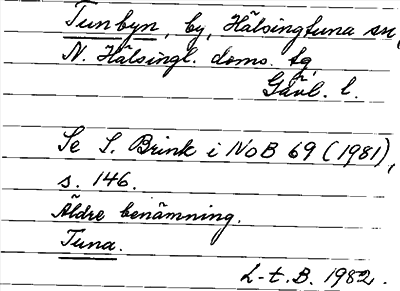 Tunbyn, by, Hälsingtuna sn,
N. Hälsingl. doms. tg,
Gävl. l.
Se S. Brink i NoB 69 (1981),
s. 146.
Äldre benämning.
Tuna.
L-t. B. 1982.